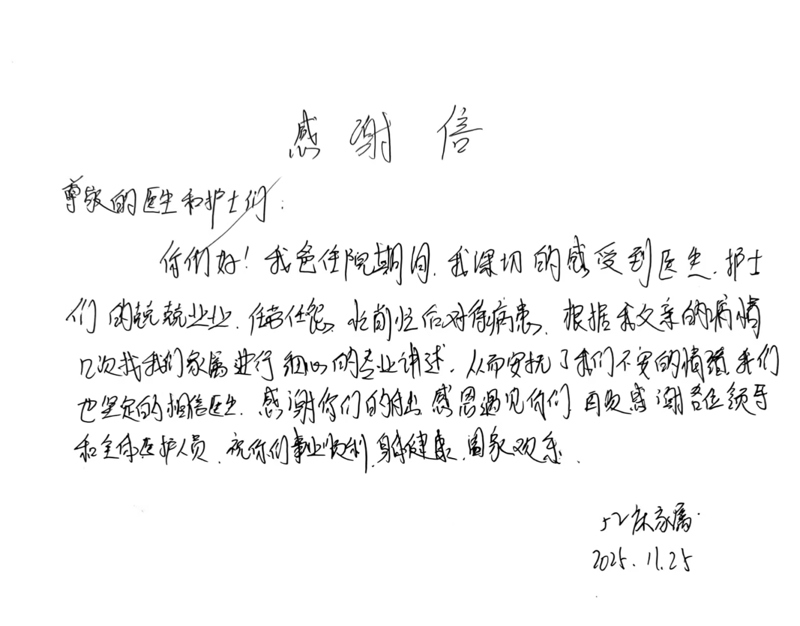 感谢信
尊敬的医生和护士们:
你们好!我爸住院期间,我深切的感受到医生、护士
们的兢兢业业、任劳任怨、忙前忙后对待病患、根据我父亲的病情
几次找我们家属进行细心的专业讲述,从而安抚了我们不安的情绪,我们
也坚定的相信医生。感谢你们的付出,感恩遇见你们,再次感谢各位领导
和全体医护人员、祝你们事业顺利,身体健康,阖家欢乐.
52床家属.
2025.11.25